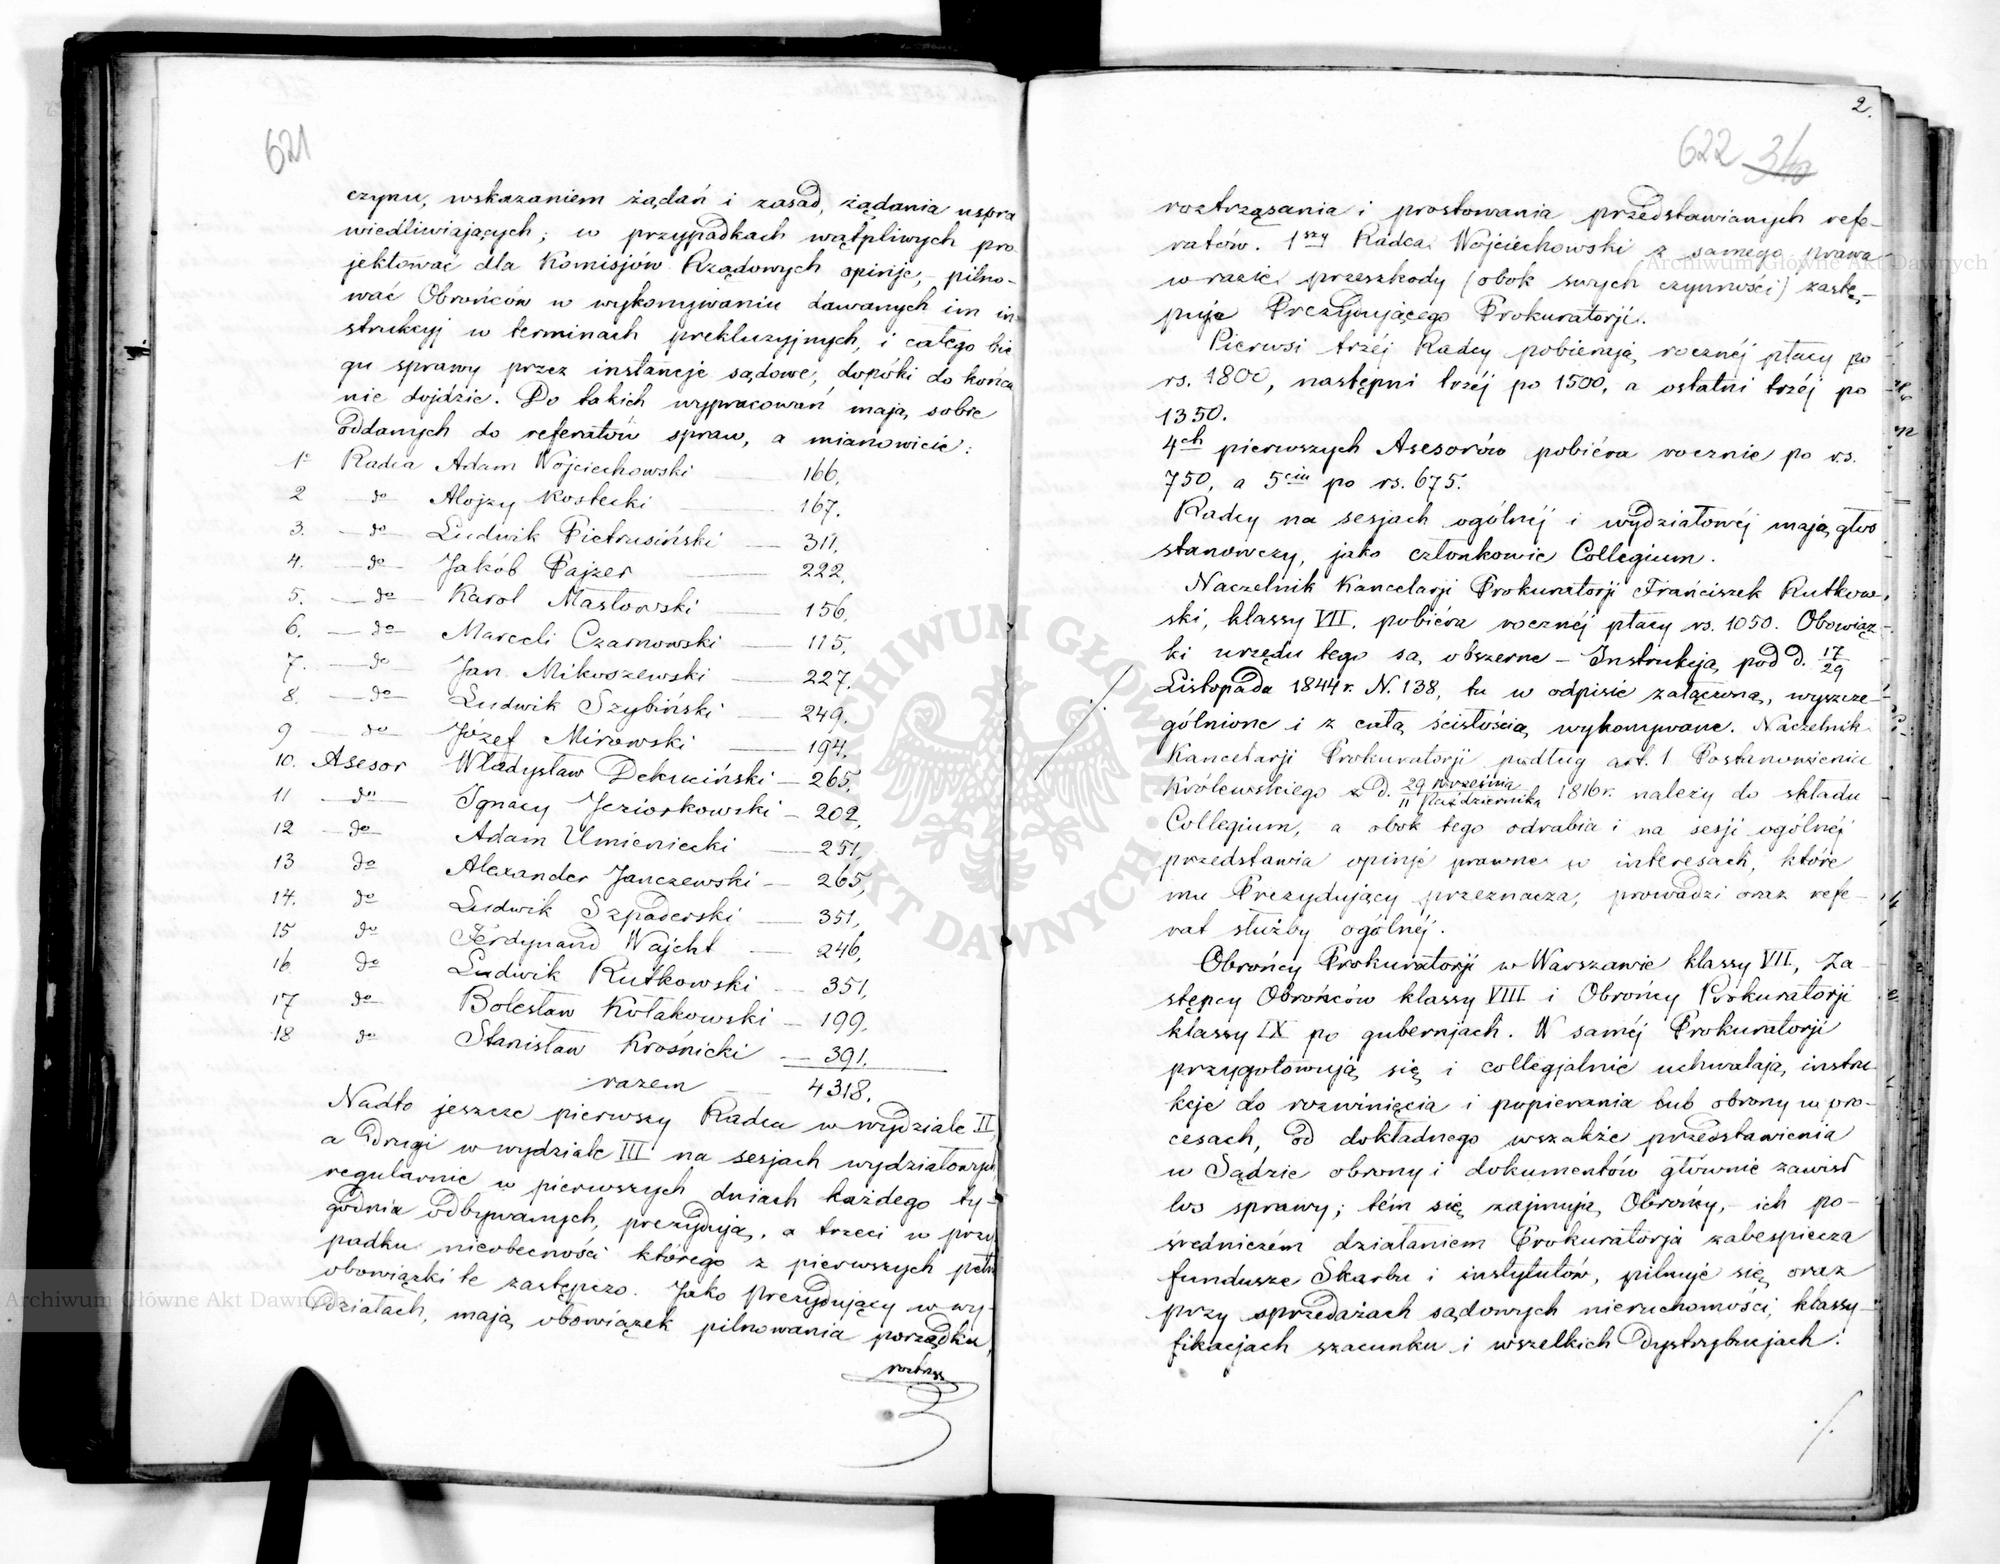 621
czynu, wskazaniem żądań i zasad, żądania uspra
wiedliwiających; w przypadkach wątpliwych pro
jektować dla Komisjów Rządowych opinje, – pilno-
wać Obrońców w wykonywaniu dawanych im in
strukcyj w terminach prekluzyjnych, i całego bie
gu sprawy przez instancje sądowe, dopóki do końca
nie dojdzie. Do takich wypracowań mają sobie
oddanych do referatów spraw, a mianowicie:
1o Radca Adam Wojciechowski — 166,
2 — do — Alojzy Kostecki — 167.
3. — do — Ludwik Pietrusiński — 311,
4. — do — Jakób Pajzer — 222,
5. — do — Karol Masłowski — 156,
6. — do — Marceli Czarnowski — 115,
7. — do — Jan Mikoszewski — 227.
8. — do — Ludwik Szybiński — 249.
9 — do — Józef Mirowski — 194.
10. Asesor Władysław Dekuciński — 265,
11 — do — Ignacy Jeziorkowski — 202,
12 — do — Adam Umieniecki — 251,
13 do Alexander Janczewski — 265,
14. do Ludwik Szpaderski — 351,
15 do Ferdynand Wajcht — 246,
16 do Ludwik Rutkowski — 351,
17 do Bolesław Kołakowski — 199,
18 do Stanisław Krośnicki — 391.
razem — 4318.
Nadto jeszcze pierwszy Radca w wydziale II,
a drugi w wydziale III na sesjach wydziałowych
regularnie w pierwszych dniach każdego ty-
godnia odbywanych, prezydują, a trzeci w przy
padku nieobecności którego z pierwszych pełni
obowiązki te zastępczo. Jako prezydujący w wy-
działach, mają obowiązek pilnowania porządku,
roztrzą
2.
622 340
roztrząsania i prostowania przedstawianych refe-
ratów. 1szy Radca Wojciechowski z samego prawa
w razie przeszkody (obok swych czynności) zastę-
puje Prezydującego Prokuratorji.
Pierwsi trzéj Radcy pobierają rocznéj płacy po
rs. 1800, następni trzéj po 1500, a ostatni trzéj po
1350.
4ch pierwszych Asesorów pobiéra rocznie po rs.
750, a 5ciu po rs. 675.
Radcy na sesjach ogólnéj i wydziałowéj mają głos
stanowczy, jako członkowie Collegium.
Naczelnik Kancelarji Prokuratorji Franciszek Rutkow-
ski, klassy VII. pobiéra rocznéj płacy rs. 1050. Obowiąz-
ki urzędu tego są obszerne – Instrukcją pod d. 17/29
Listopada 1844 r. N. 138, tu w odpisie załączoną, wyszcze-
gólnione i z całą ścisłością wykonywane. Naczelnik
Kancelarji Prokuratorji podług art. 1 Postanowienia
Królewskiego z d. 29 Września / 11 Października 1816 r. należy do składu
Collegium, a obok tego odrabia i na sesji ogólnéj
przedstawia opinje prawne w interesach, które
mu Prezydujący przeznacza, prowadzi oraz refe-
rat służby ogólnéj.
Obrońcy Prokuratorji w Warszawie klassy VII, Za-
stępcy Obrońców klassy VIII i Obrońcy Prokuratorji
klassy IX po gubernjach. W saméj Prokuratorji
przygotowują się i collegjalnie uchwalają instru-
kcje do rozwinięcia i popierania lub obrony w pro-
cesach, od dokładnego wszakże przedstawienia
w Sądzie obrony i dokumentów głównie zawisł
los sprawy; tém się zajmują Obrońcy, – ich po-
średniczém działaniem Prokuratorja zabespiecza
fundusze Skarbu i instytutów, pilnuje się oraz
przy sprzedażach sądowych nieruchomości, klassy-
fikacjach szacunku i wszelkich dystrybucjach.
Archiwum Główne Akt Dawnych
Archiwum Główne Akt Dawnych
ARCHIWUM GŁÓWNE AKT DAWNYCH